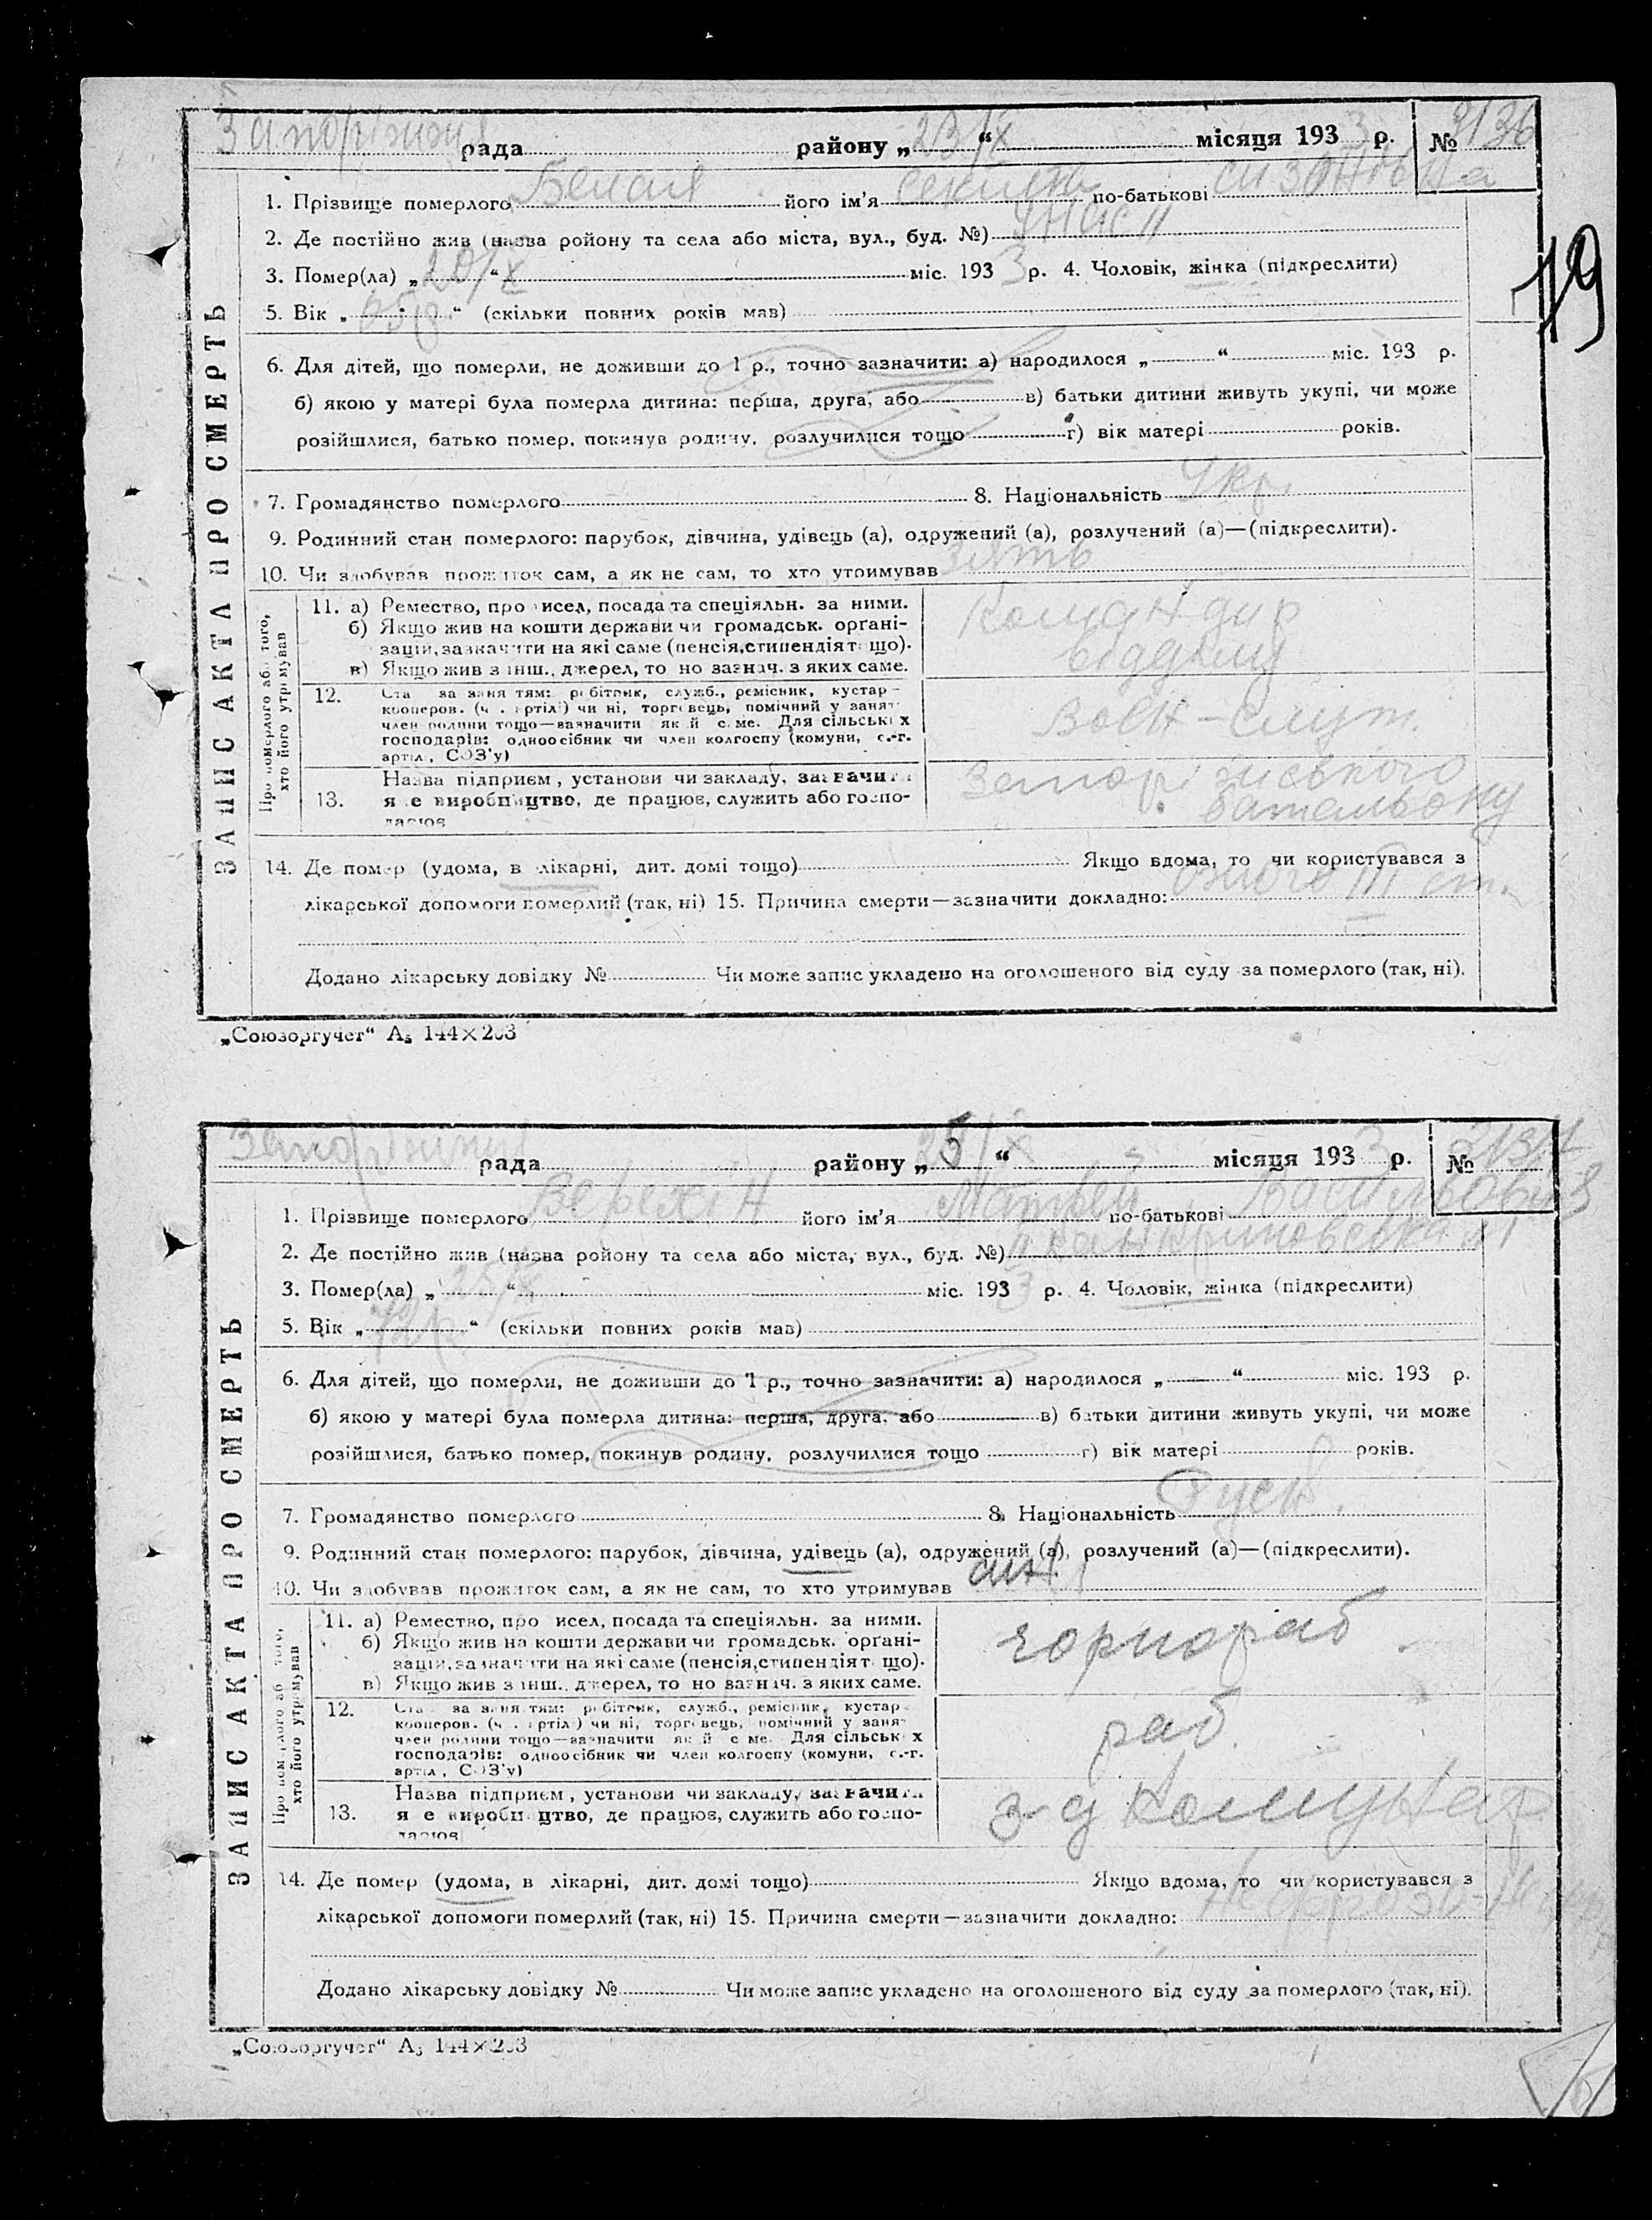 Запоріжжя рада района „23/X“ місяця 1933 р. № 2136
19
1. Прізвище померлого Белая його ім'я по-батькові
2. Де постійно жив (назва ройону та села або міста, вул., буд. №)
3. Помер(ла) „20/X“ міс. 1933 р. 4. Чоловік, жінка (підкреслити)
5. Вік „65р.“ (скільки повних років мав)
6. Для дітей, що померли, не доживши до 1 р., точно зазначити: а) народилося „ “ міс. 193 р.
б) якою у матері була померла дитина: перша, друга, або в) батьки дитини живуть укупі, чи може
розійшлися, батько помер, покинув родину, розлучилися тощо г) вік матері років.
7. Громадянство померлого 8. Національність Укр.
9. Родинний стан померлого: парубок, дівчина, удівець (а), одружений (а), розлучений (а)—(підкреслити).
10. Чи здобував прожиток сам, а як не сам, то хто утримував зять
ЗАПИС АКТА ПРО СМЕРТЬ
Про померлого або того,
хто його утримував
11. а) Ремество, промисел, посада та спеціяльн. за ними.
б) Якщо жив на кошти держави чи громадськ. органі-
зацій, зазначити на які саме (пенсія, стипендія тощо).
в) Якщо жив з інш. джерел, то но зазнач. з яких саме.
Командир
відділу
12. Ста за заняттям: робітник, служб., ремісник, кустар -
кооперов. (ч. артілі) чи ні, торговець, помічний у занят
член родини тощо—зазначити який саме. Для сільських
господарів: одноосібник чи член колгоспу (комуни, с.-г.
артіл., СОЗ'у)
Воен-служ.
13. Назва підприєм, установи чи закладу, зазначити
яке виробництво, де працює, служить або госпо-
дарює
Запоріжського
батальону
14. Де помер (удома, в лікарні, дит. домі тощо) Якщо вдома, то чи користувався з
лікарської допомоги померлий (так, ні) 15. Причина смерти—зазначити докладно: III ст.
Додано лікарську довідку № Чи може запис укладено на оголошеного від суду за померлого (так, ні).
„Союзоргучет“ А5 144×203
Запоріжжя рада району „25/X“ місяця 1933 р. №
1. Прізвище померлого Верехін його ім'я Матвей по-батькові Васильович
2. Де постійно жив (назва ройону та села або міста, вул., буд. №)
3. Помер(ла) „25/X“ міс. 1933 р. 4. Чоловік, жінка (підкреслити)
5. Вік „72р.“ (скільки повних років мав)
6. Для дітей, що померли, не доживши до 1 р., точно зазначити: а) народилося „ “ міс. 193 р.
б) якою у матері була померла дитина: перша, друга, або в) батьки дитини живуть укупі, чи може
розійшлися, батько помер, покинув родину, розлучилися тощо г) вік матері років.
7. Громадянство померлого 8. Національність Руськ.
9. Родинний стан померлого: парубок, дівчина, удівець (а), одружений (а), розлучений (а)—(підкреслити).
10. Чи здобував прожиток сам, а як не сам, то хто утримував син
ЗАПИС АКТА ПРО СМЕРТЬ
Про померлого або того,
хто його утримував
11. а) Ремество, промисел, посада та спеціяльн. за ними.
б) Якщо жив на кошти держави чи громадськ. органі-
зацій, зазначити на які саме (пенсія, стипендія тощо).
в) Якщо жив з інш. джерел, то но зазнач. з яких саме.
чорнораб.
12. Ста за заняттям: робітник, служб., ремісник, кустар -
кооперов. (ч. артілі) чи ні, торговець, помічний у занят
член родини тощо—зазначити який саме. Для сільських
господарів: одноосібник чи член колгоспу (комуни, с.-г.
артіл., СОЗ'у)
раб.
13. Назва підприєм, установи чи закладу, зазначити
яке виробництво, де працює, служить або госпо-
дарює
з-д Комунар
14. Де помер (удома, в лікарні, дит. домі тощо) Якщо вдома, то чи користувався з
лікарської допомоги померлий (так, ні) 15. Причина смерти—зазначити докладно:
Додано лікарську довідку № Чи може запис укладено на оголошеного від суду за померлого (так, ні).
„Союзоргучет“ А5 144×203